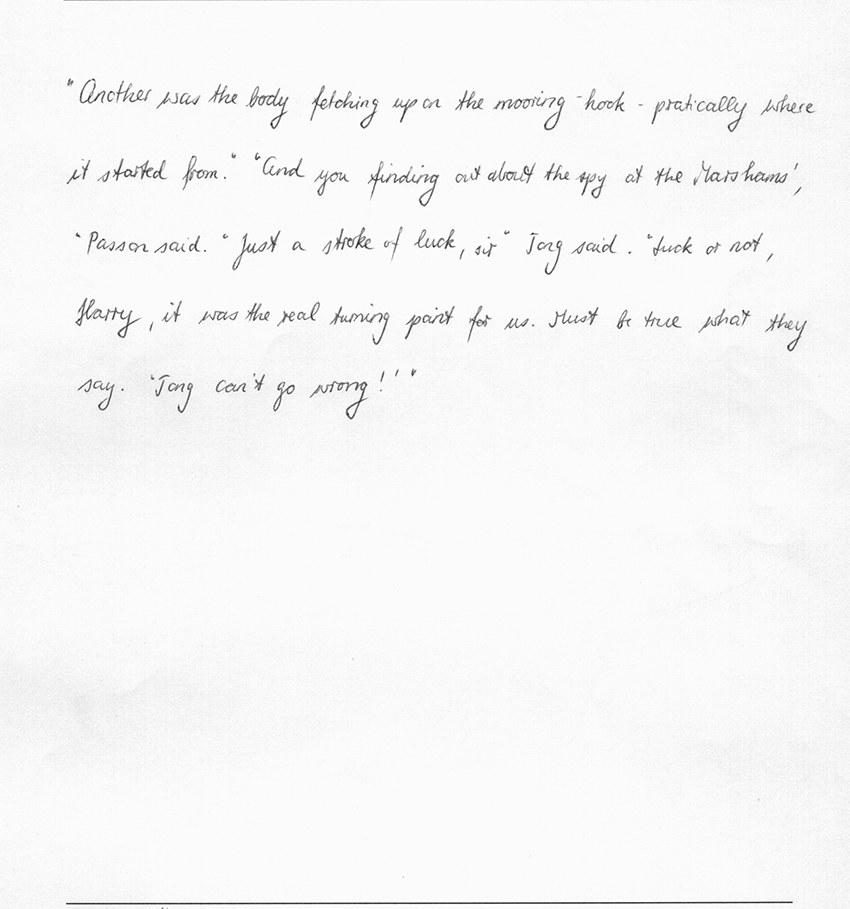 "Another was the body fetching up on the mooring-hook - pratically where
it started from." "And you finding out about the spy at the Marshams',
"Passon said. "Just a stroke of luck, sir" Tong said. "Luck or not,
Harry, it was the real turning point for us. Must be true what they
say. 'Tong can't go wrong!'"